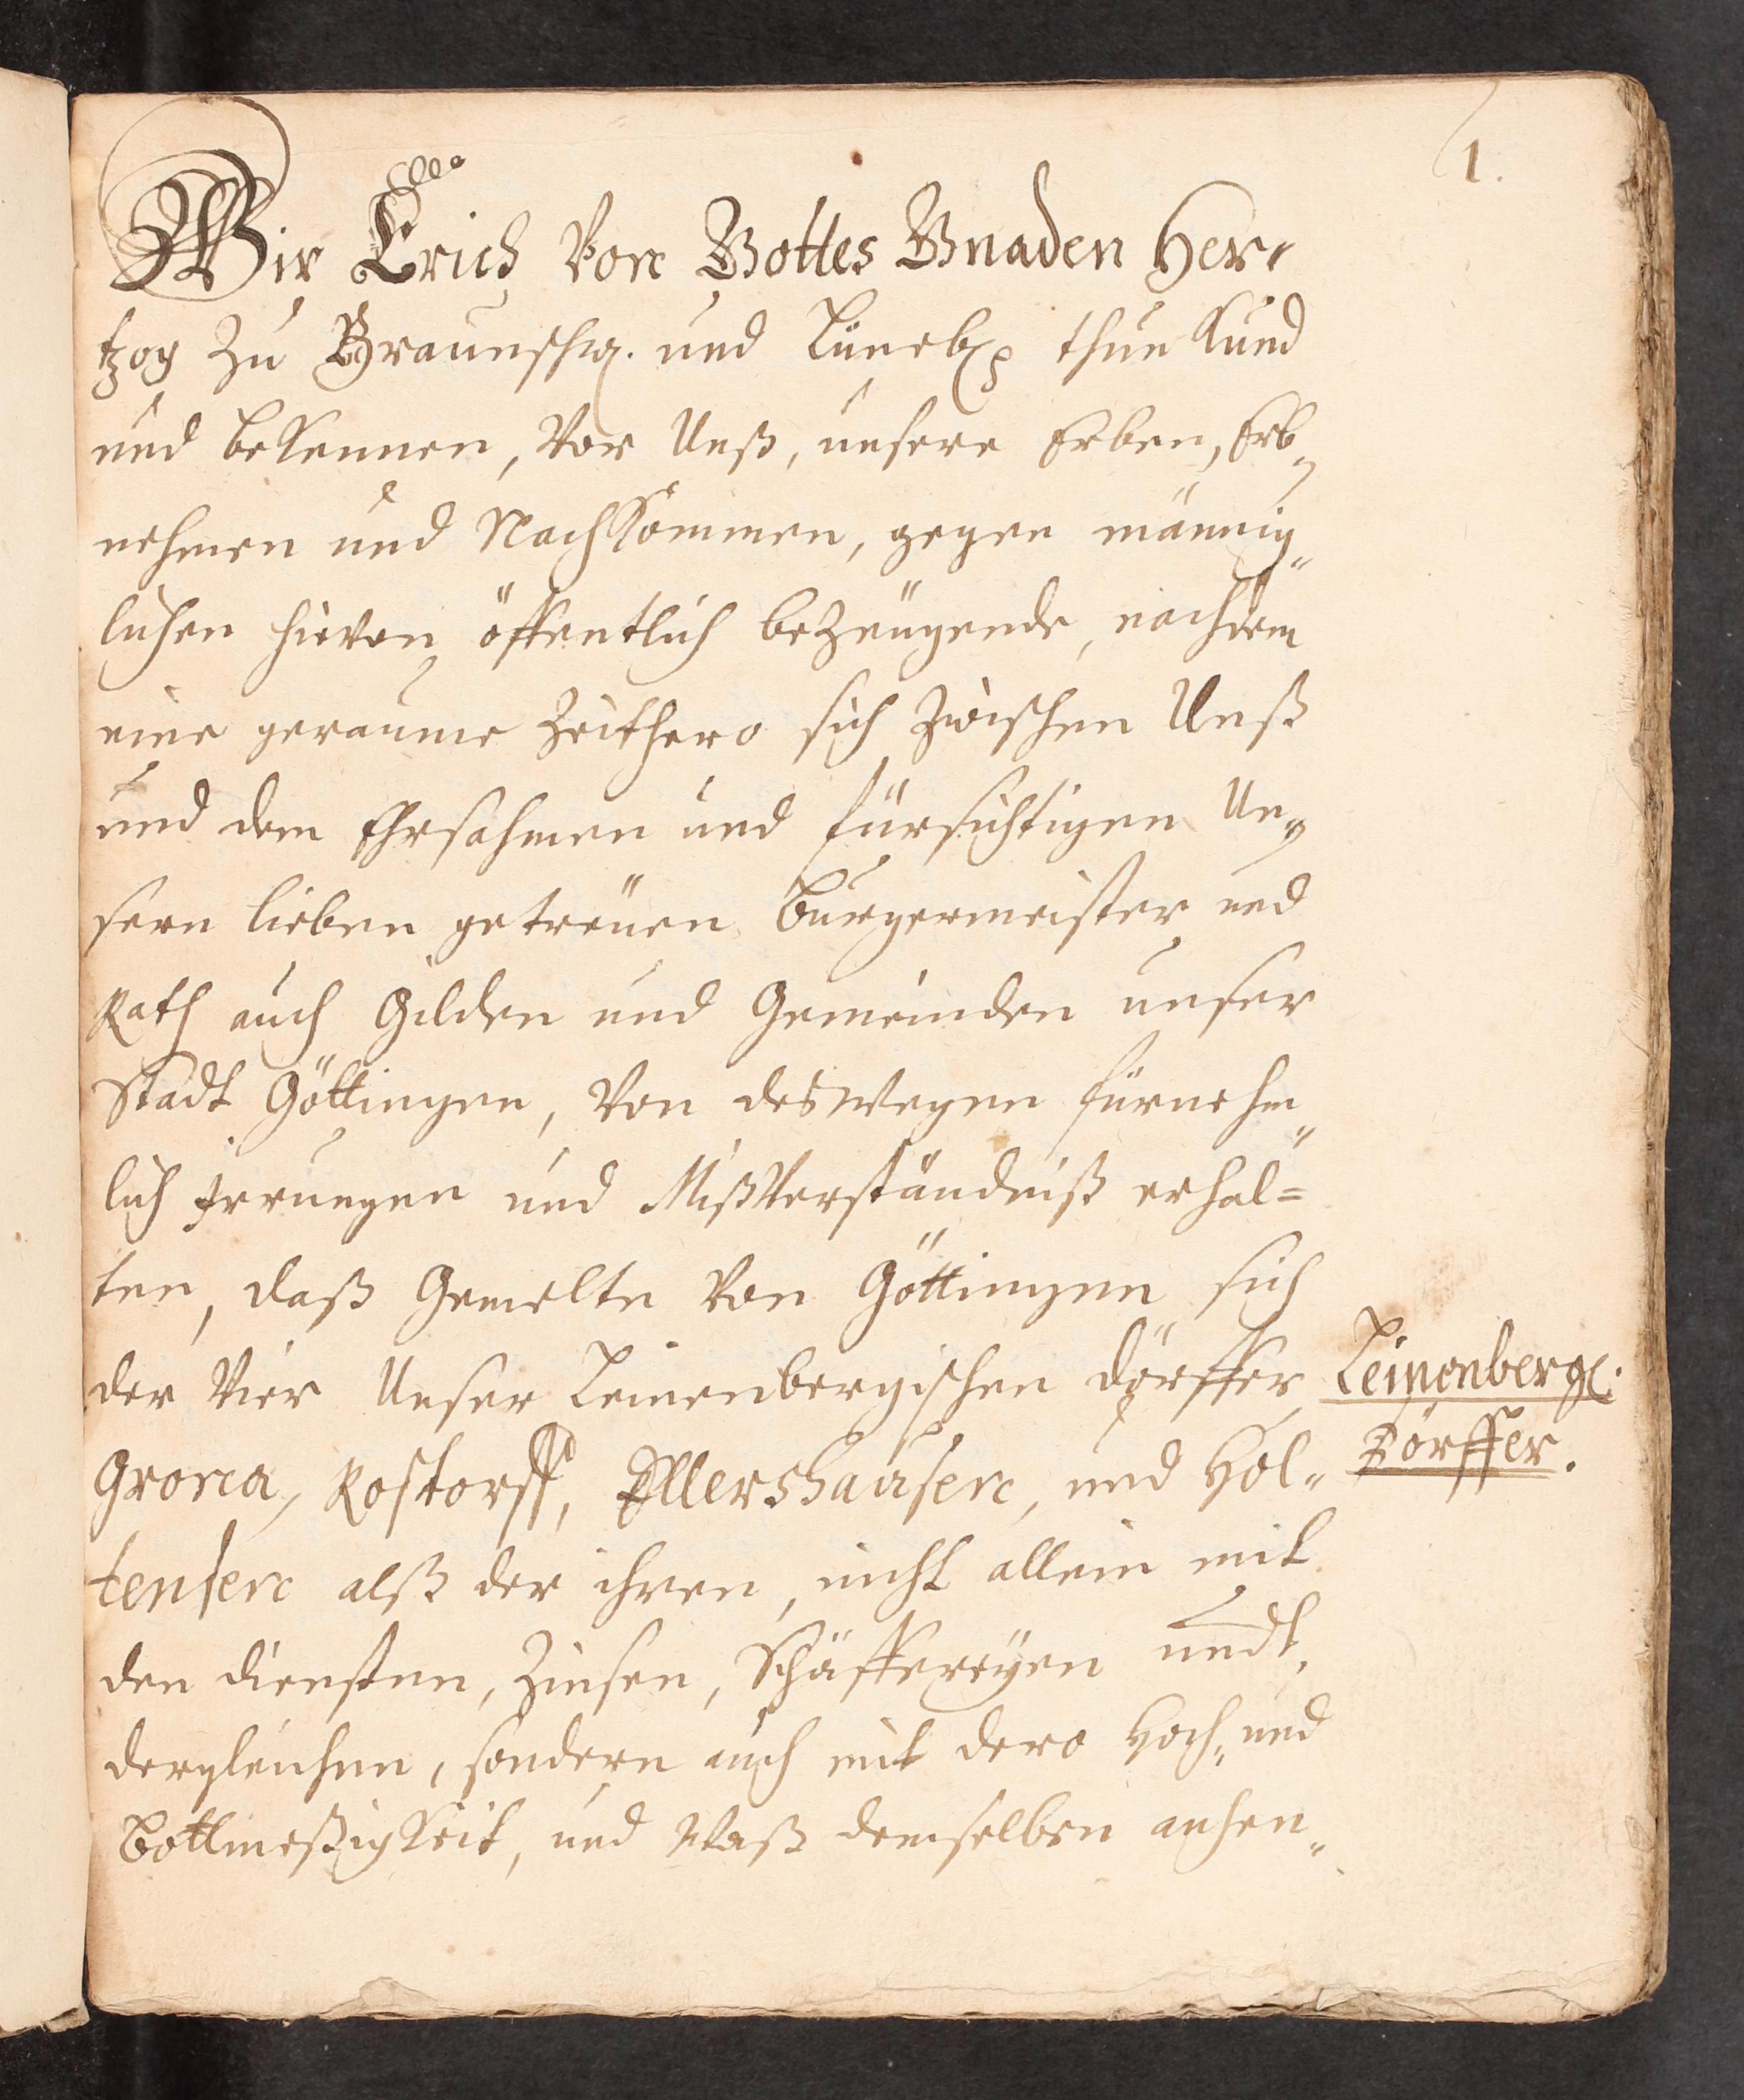 1.
Wir Erich Von Gottes Gnaden Her-
tzog zu Braunschw. und Lünebg thun kund
und bekennen, Vor Unß, unsere Erben, Erb-
nehmen und Nachkommen, gegen männig-
lichen hievon öffentlich bezeugende, nachdem
eine geraume Zeithero sich zwischen Unß
und dem Ehrsahmen und fürsichtigen Un-
sern lieben getreuen Burgermeister und
Rath auch Gilden und Gemeinden unser
Stadt Göttingen, Von deswegen fürnehm-
lich Irrungen und Mißverständniß erhal=
ten, daß Gemelte Von Göttingen sich
der Vier Unser Leinenbergischen Dörffer
Leinenbergl.
Dörffer.
Grona, Rostorff, Ellershausen, und Hol-
tensen alß der ihren, nicht allein mit
den Diensten, Zinsen, Schäffereyen undt
dergleichen, sondern auch mit dero Hoch- und
Bottmeßigkeit, und Waß demselben anhen-